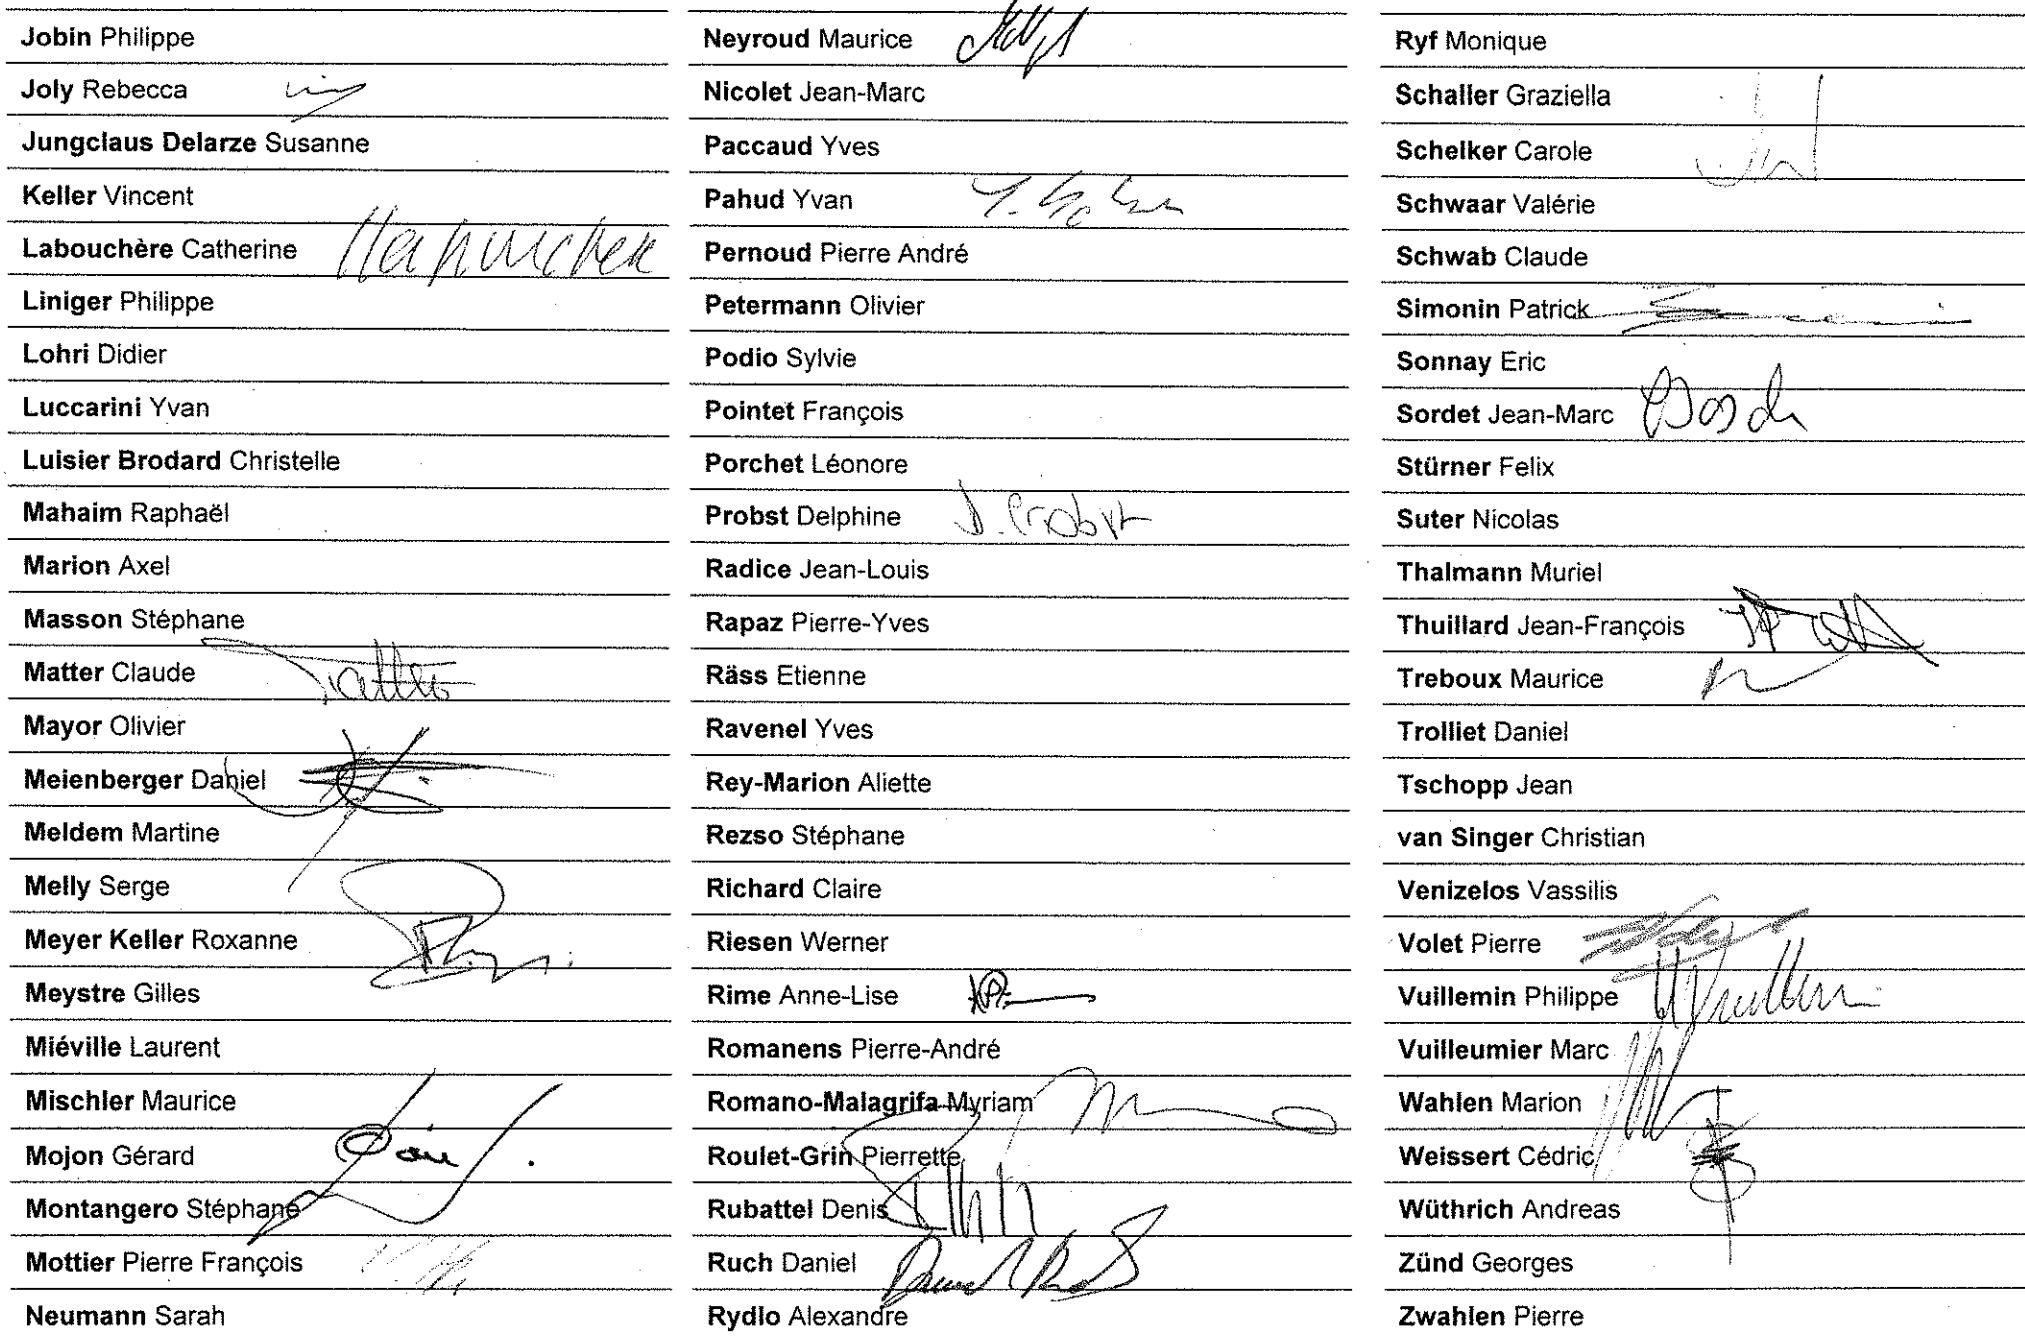 Jobin Philippe
Joly Rebecca
Jungclaus Delarze Susanne
Keller Vincent
Labouchère Catherine
Liniger Philippe
Lohri Didier
Luccarini Yvan
Luisier Brodard Christelle
Mahaim Raphaël
Marion Axel
Masson Stéphane
Matter Claude
Mayor Olivier
Meienberger Daniel
Meldem Martine
Melly Serge
Meyer Keller Roxanne
Meystre Gilles
Miéville Laurent
Mischler Maurice
Mojon Gérard
Montangero Stéphane
Mottier Pierre François
Neumann Sarah
Neyroud Maurice
Nicolet Jean-Marc
Paccaud Yves
Pahud Yvan
Pernoud Pierre André
Petermann Olivier
Podio Sylvie
Pointet François
Porchet Léonore
Probst Delphine D. Probst
Radice Jean-Louis
Rapaz Pierre-Yves
Räss Etienne
Ravenel Yves
Rey-Marion Aliette
Rezso Stéphane
Richard Claire
Riesen Werner
Rime Anne-Lise
Romanens Pierre-André
Romano-Malagrifa Myriam
Roulet-Grin Pierrette
Rubattel Denis
Ruch Daniel
Rydlo Alexandre
Ryf Monique
Schaller Graziella
Schelker Carole
Schwaar Valérie
Schwab Claude
Simonin Patrick
Sonnay Eric
Sordet Jean-Marc
Stürner Felix
Suter Nicolas
Thalmann Muriel
Thuillard Jean-François
Treboux Maurice
Trolliet Daniel
Tschopp Jean
van Singer Christian
Venizelos Vassilis
Volet Pierre
Vuillemin Philippe
Vuilleumier Marc
Wahlen Marion
Weissert Cédric
Wüthrich Andreas
Zünd Georges
Zwahlen Pierre